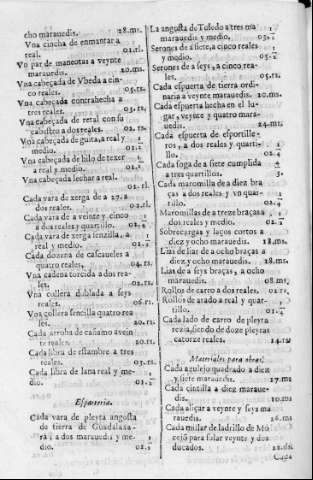 cho marauedis. 28.ms.
Vna cincha de enmantar a
real. 01.
Vn par de maneotas a veynte
marauedis. 20.ms
Vna cabeçada de Vbeda a cin-
co reales. 05.rs.
Vna cabeçada contrahecha a
tres reales. 03.rs,
Vna cabeçada de retal con su
cabestro a dos reales. 02.rs.
Vna cabeçada de guita, a real y
medio. 01.
Vna cabeçada de hilo de texer
a real y medio.
Vna cabeçada lechar a real.
01.rl.
Cada vara de xerga de a 27. a
dos reales. 02.rs.
Cada vara de a veinte y cinco
a dos reales y quartillo. 02.
Cada vara de xerga senzilla, a
real y medio. 01.
Cada dozena de cascaueles a
quatro reales. 04.rs
Vna cadena torcida a dos rea-
les. 02.rs.
Vna collera dublada a seys
reales. 06.rs.
Vna collera sencilla quatro rea
les. 04.rs.
Cada arroba de cañamo avein
te reales. 20.rs.
Cada libra de estambre a tres
reales. 03.rs.
Cada libra de lana real y me-
dio. 01.
Esparteria.
Cada vara de pleyta angosta
de tierra de Guadalaxa-
ra a dos marauedis y me-
dio. 02.
La angosta de Toledo a tres ma
rauedis y medio. 03.
Serones de a siete, a cinco reales
y medio. 05.
Serones de a seys, a cinco rea-
les. 05.rs.
Cada espuerta de tierra ordi-
naria a veynte marauedis. 20.ms.
Cada espuerta hecha en el lu-
gar, veynte y quatro mara-
uedis. 24.ms.
Cada espuerta de esportille-
ros, a dos reales y quarti-
llo. 02.
Cada soga de a siete cumplida
a tres quartillos. 3.
Cada maromilla de a diez bra
ças a dos reales y vn quar-
tillo. 02.
Maromillas de a treze braças a
dos reales y medio. 02.
Sobrecargas y laços cortos a
diez y ocho marauedis. 18.ms.
Lias de liar de a ocho braças a
diez y ocho marauedis. 18.ms.
Lias de a seys braças, a ocho
marauedis. 08.ms.
Rollos de carro a dos reales. 02.rs.
Rollos de arado a real y quar-
tillo. 01.
Cada lado de carro de pleyra
rezia, siendo de doze pleyras
catorze reales. 14.rs
Materiales para obras.
Cada azulejo quadrado a diez
y siete marauedis. 17.ms
Cada cintilla a diez maraue-
dis. 10.ms
Cada aliçar a veynte y seys ma
rauedis. 26.ms
Cada millar de ladrillo de Mo
cejó para solar veynte y dos
ducados. 22.ds.
Cada